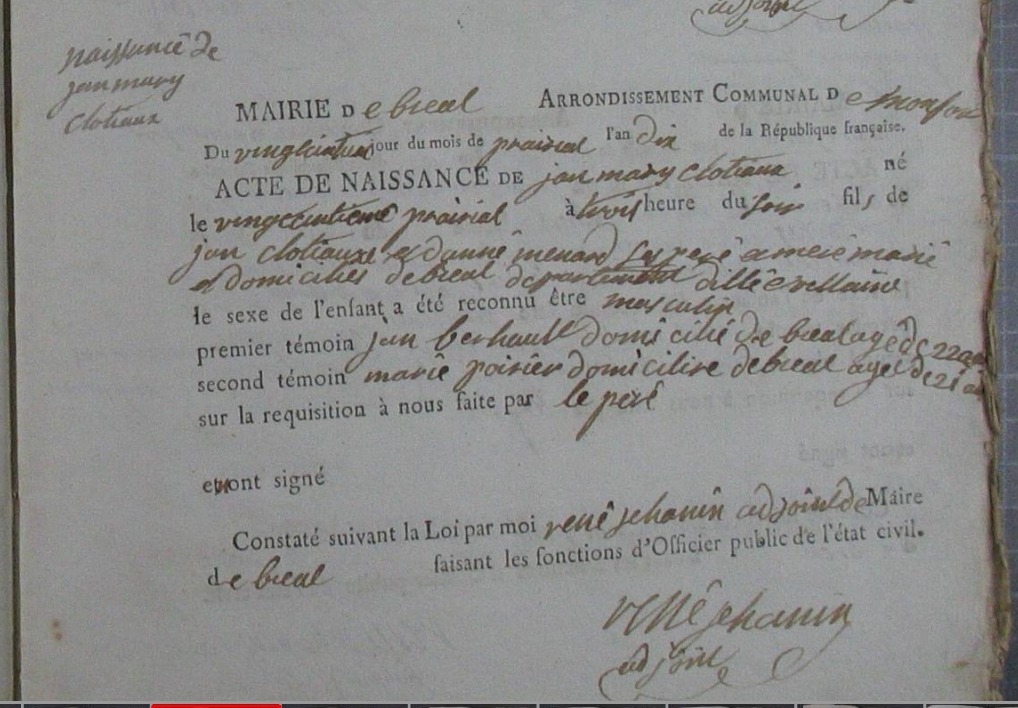 adjoint
naissance de
jan mary
clotiaux
MAIRIE D e breal ARRONDISSEMENT COMMUNAL D e monfor
Du vingtcintieme jour du mois de prairial l'an dix de la République française.
ACTE DE NAISSANCE DE jan mary clotiaux né
le vingtcintieme prairial à trois heure du soir fils de
jan clotiaux et danne menard ses pere a mere marié
et domiciliés de breal departement dille evillaine
le sexe de l'enfant a été reconnu être masculin
premier témoin jan berhault domicilié de breal agé de 22 an
second témoin marie poirier domiciliee de breal agée de 21 an
sur la requisition à nous faite par le peré
et ont signé
Constaté suivant la Loi par moi rené jehanin adjoint de Maire
de breal faisant les fonctions d'Officier public de l'état civil.
rené jehanin
adjoint